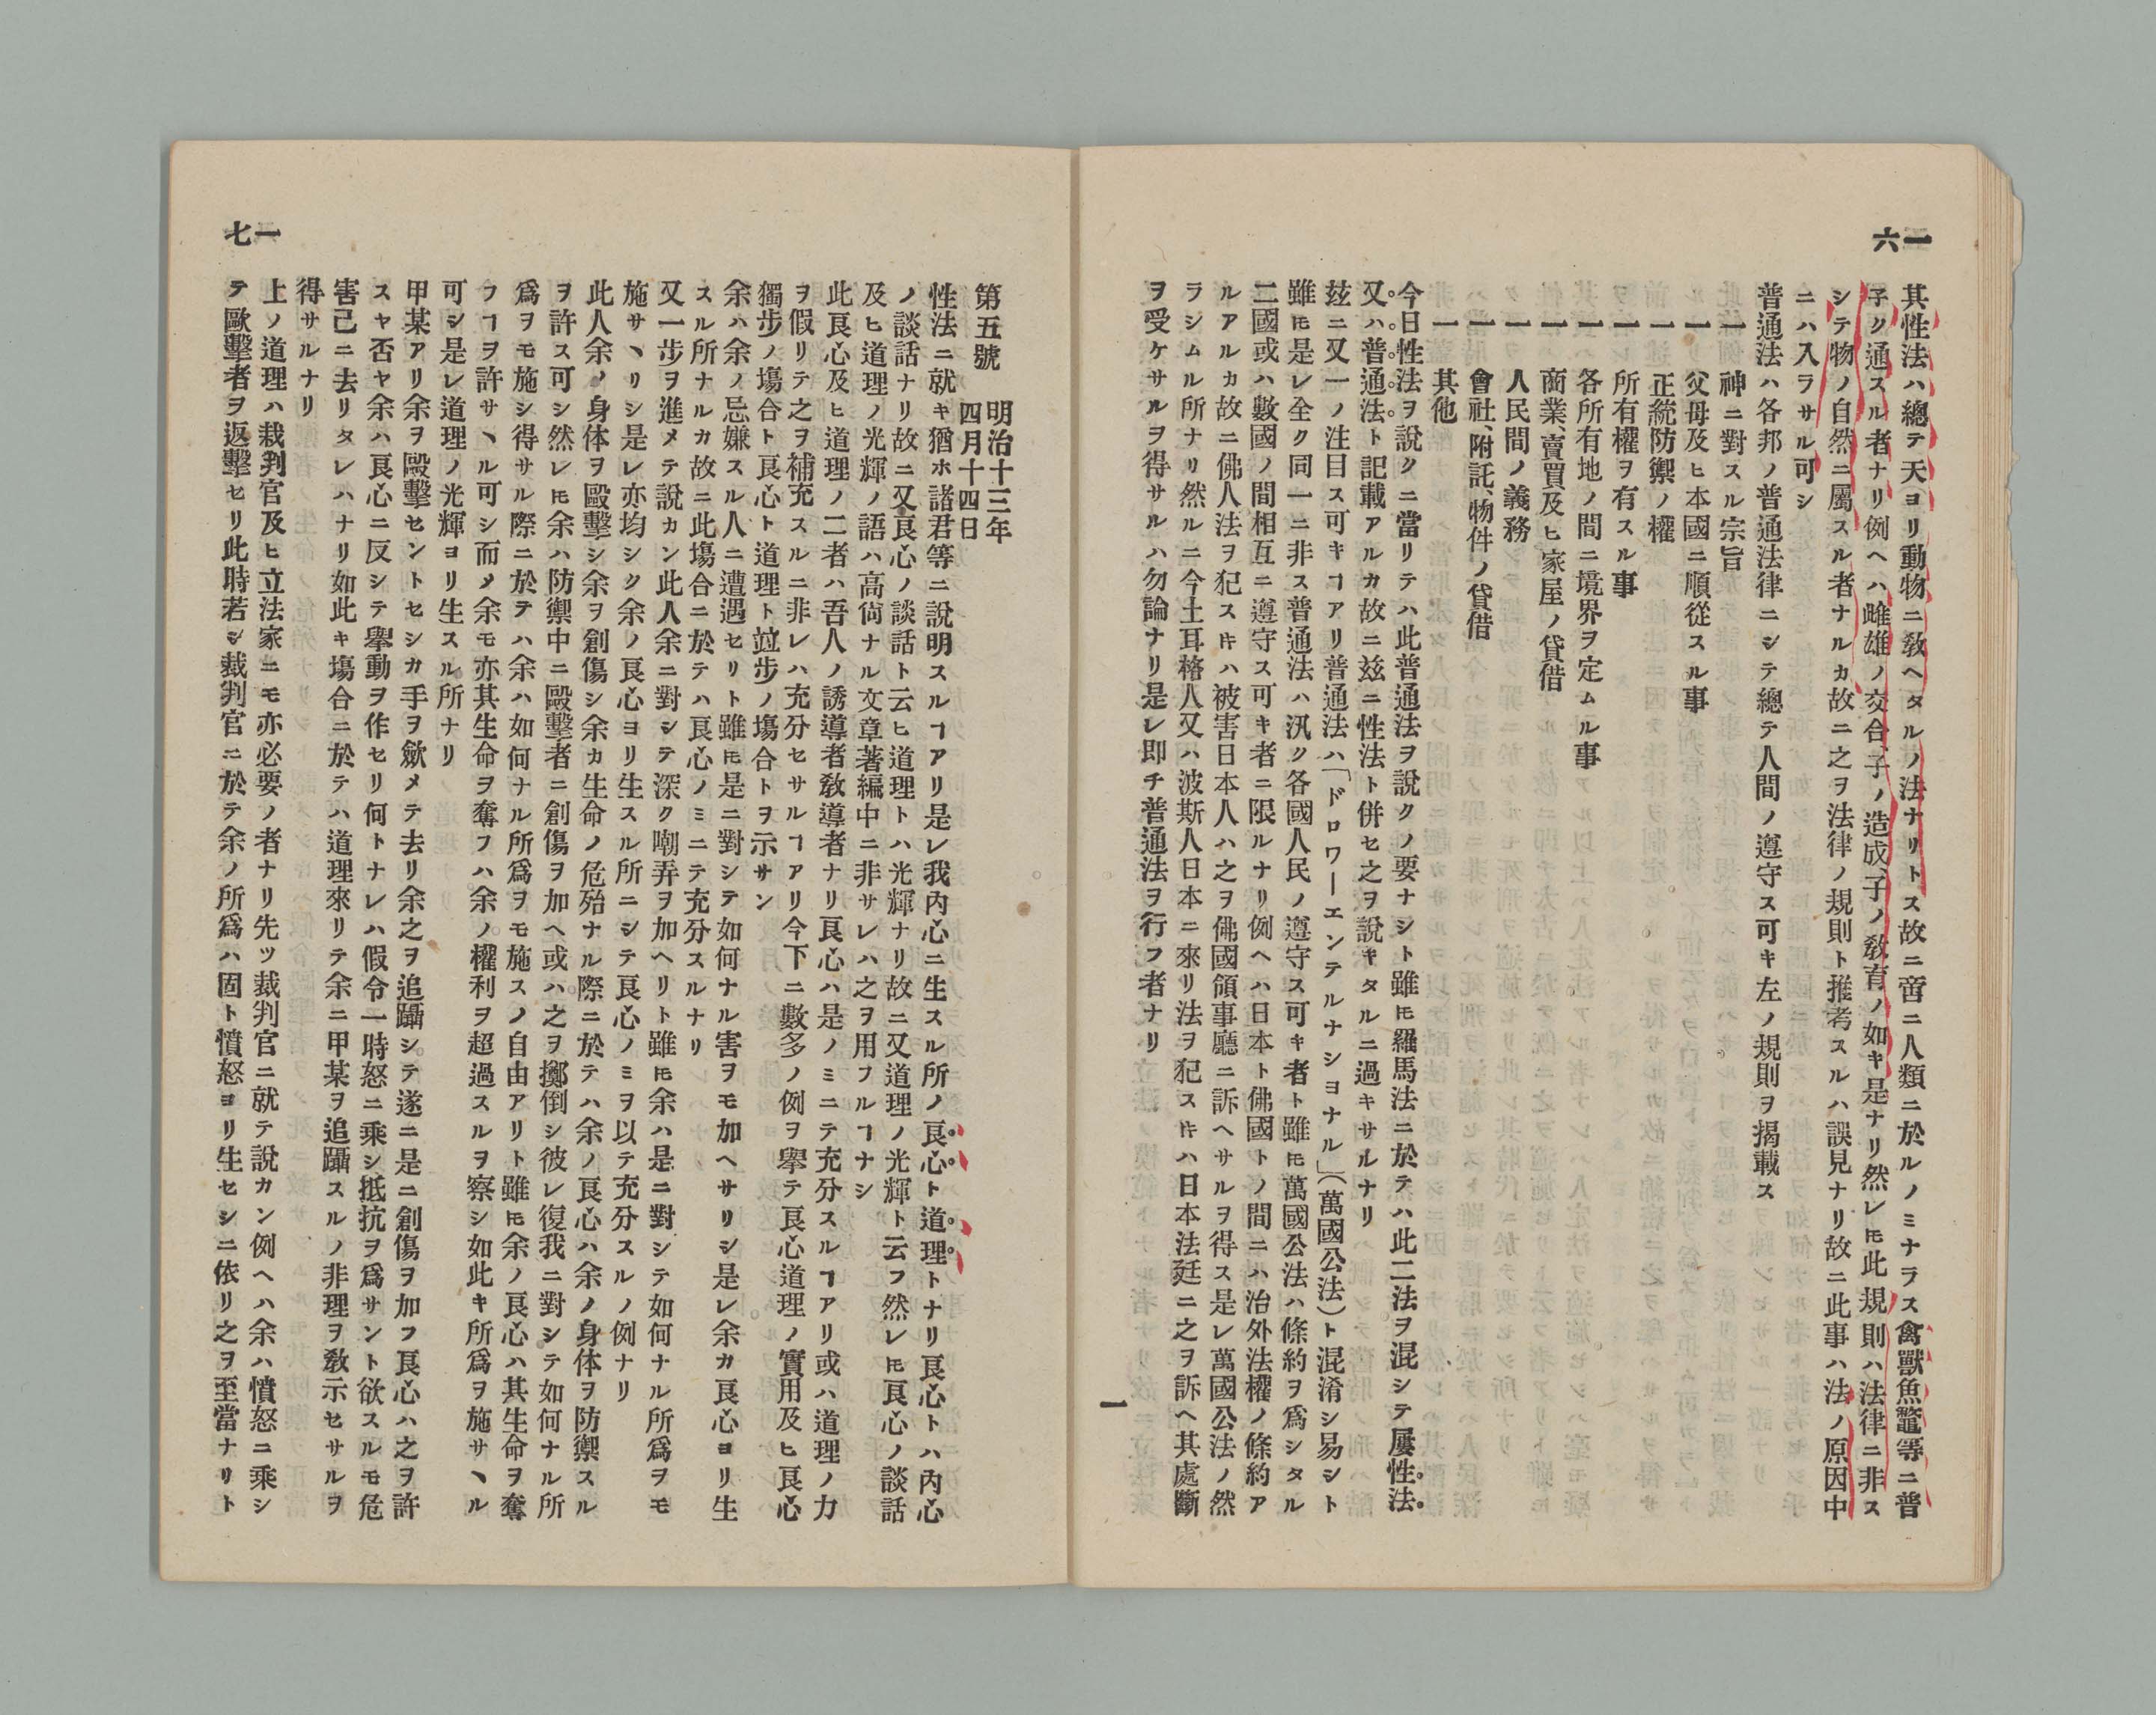 一六
其性法ハ總テ天ヨリ動物ニ敎ヘタルノ法ナリトス故ニ啻ニ人類ニ於ルノミナラス禽獸魚鼈等ニ普
子ク通スル者ナリ例ヘハ雌雄ノ交合、子ノ造成、子ノ敎育ノ如キ是ナリ然レㇳモ此規則ハ法律ニ非ス
シテ物ノ自然ニ屬スル者ナルカ故ニ之ヲ法律ノ規則ト推考スルハ誤見ナリ故ニ此事ハ法ノ原因中
ニハ入ラサル可シ
普通法ハ各邦ノ普通法律ニシテ總テ人間ノ遵守ス可キ左ノ規則ヲ揭載ス
一 神ニ對スル宗旨
一 父母及ヒ本國ニ順從スル事
一 正統防禦ノ權
一 所有權ヲ有スル事
一 各所有地ノ間ニ境界ヲ定ムル事
一 商業、賣買及ヒ家屋ノ貸借
一 人民間ノ義務
一 會社、附託、物件ノ貸借
一 其他
今日性法ヲ說クニ當リテハ此普通法ヲ說クノ要ナシト雖ㇳモ羅馬法ニ於テハ此二法ヲ混シテ屢性法
又ハ普通法ト記載アルカ故ニ玆ニ性法ト併セ之ヲ說キタルニ過キサルナリ
玆ニ又一ノ注目ス可キヿアリ普通法ハ「ドロワーエンテルナショナル」(萬國公法)ト混淆シ易シト
雖ㇳモ是レ全ク同一ニ非ス普通法ハ汎ク各國人民ノ遵守ス可キ者ト雖ㇳモ萬國公法ハ條約ヲ爲シタル
二國或ハ數國ノ間相互ニ遵守ス可キ者ニ限ルナリ例ヘハ日本ト佛國トノ間ニハ治外法權ノ條約ア
ルアルカ故ニ佛人法ヲ犯スㇳキハ被害日本人ハ之ヲ佛國領事廳ニ訴ヘサルヲ得ス是レ萬國公法ノ然
ラシムル所ナリ然ルニ今土耳格人又ハ波斯人日本ニ來リ法ヲ犯スㇳキハ日本法廷ニ之ヲ訴ヘ其處斷
ヲ受ケサルヲ得サルハ勿論ナリ是レ即チ普通法ヲ行フ者ナリ
一
一七
第五號 明治十三年
四月十四日
性法ニ就キ猶ホ諸君等ニ說明スルヿアリ是レ我內心ニ生スル所ノ良心ト道理トナリ良心トハ內心
ノ談話ナリ故ニ又良心ノ談話ト云ヒ道理トハ光輝ナリ故ニ又道理ノ光輝ト云フ然レㇳモ良心ノ談話
及ヒ道理ノ光輝ノ語ハ高尙ナル文章著編中ニ非サレハ之ヲ用フルヿナシ
此良心及ヒ道理ノ二者ハ吾人ノ誘導者敎導者ナリ良心ハ是ノミニテ充分スルヿアリ或ハ道理ノ力
ヲ假リテ之ヲ補充スルニ非レハ充分セサルヿアリ今下ニ數多ノ例ヲ擧テ良心道理ノ實用及ヒ良心
獨步ノ塲合ト良心ト道理ト竝步ノ塲合トヲ示サン
余ハ余ノ忌嫌スル人ニ遭遇セリト雖ㇳモ是ニ對シテ如何ナル害ヲモ加ヘサリシ是レ余カ良心ヨリ生
スル所ナルカ故ニ此塲合ニ於テハ良心ノミニテ充分スルナリ
又一步ヲ進メテ說カン此人余ニ對シテ深ク嘲弄ヲ加ヘリト雖ㇳモ余ハ是ニ對シテ如何ナル所爲ヲモ
施サヽリシ是レ亦均シク余ノ良心ヨリ生スル所ニシテ良心ノミヲ以テ充分スルノ例ナリ
此人余ノ身体ヲ毆擊シ余ヲ創傷シ余カ生命ノ危殆ナル際ニ於テハ余ノ良心ハ余ノ身体ヲ防禦スル
ヲ許ス可シ然レㇳモ余ハ防禦中ニ毆擊者ニ創傷ヲ加ヘ或ハ之ヲ擲倒シ彼レ復我ニ對シテ如何ナル所
爲ヲモ施シ得サル際ニ於テハ余ハ如何ナル所爲ヲモ施スノ自由アリト雖ㇳモ余ノ良心ハ其生命ヲ奪
フヿヲ許サヽル可シ而〆余モ亦其生命ヲ奪フハ余ノ權利ヲ超過スルヲ察シ如此キ所爲ヲ施サヽル
可シ是レ道理ノ光輝ヨリ生スル所ナリ
甲某アリ余ヲ毆擊セントセシカ手ヲ歛メテ去リ余之ヲ追躡シテ遂ニ是ニ創傷ヲ加フ良心ハ之ヲ許
スヤ否ヤ余ハ良心ニ反シテ擧動ヲ作セリ何トナレハ假令一時怒ニ乘シ抵抗ヲ爲サント欲スルモ危
害已ニ去リタレハナリ如此キ塲合ニ於テハ道理來リテ余ニ甲某ヲ追躡スルノ非理ヲ敎示セサルヲ
得サルナリ
上ノ道理ハ裁判官及ヒ立法家ニモ亦必要ノ者ナリ先ツ裁判官ニ就テ說カン例ヘハ余ハ憤怒ニ乘シ
テ歐擊者ヲ返擊セリ此時若シ裁判官ニ於テ余ノ所爲ハ固ト憤怒ヨリ生セシニ依リ之ヲ至當ナリト